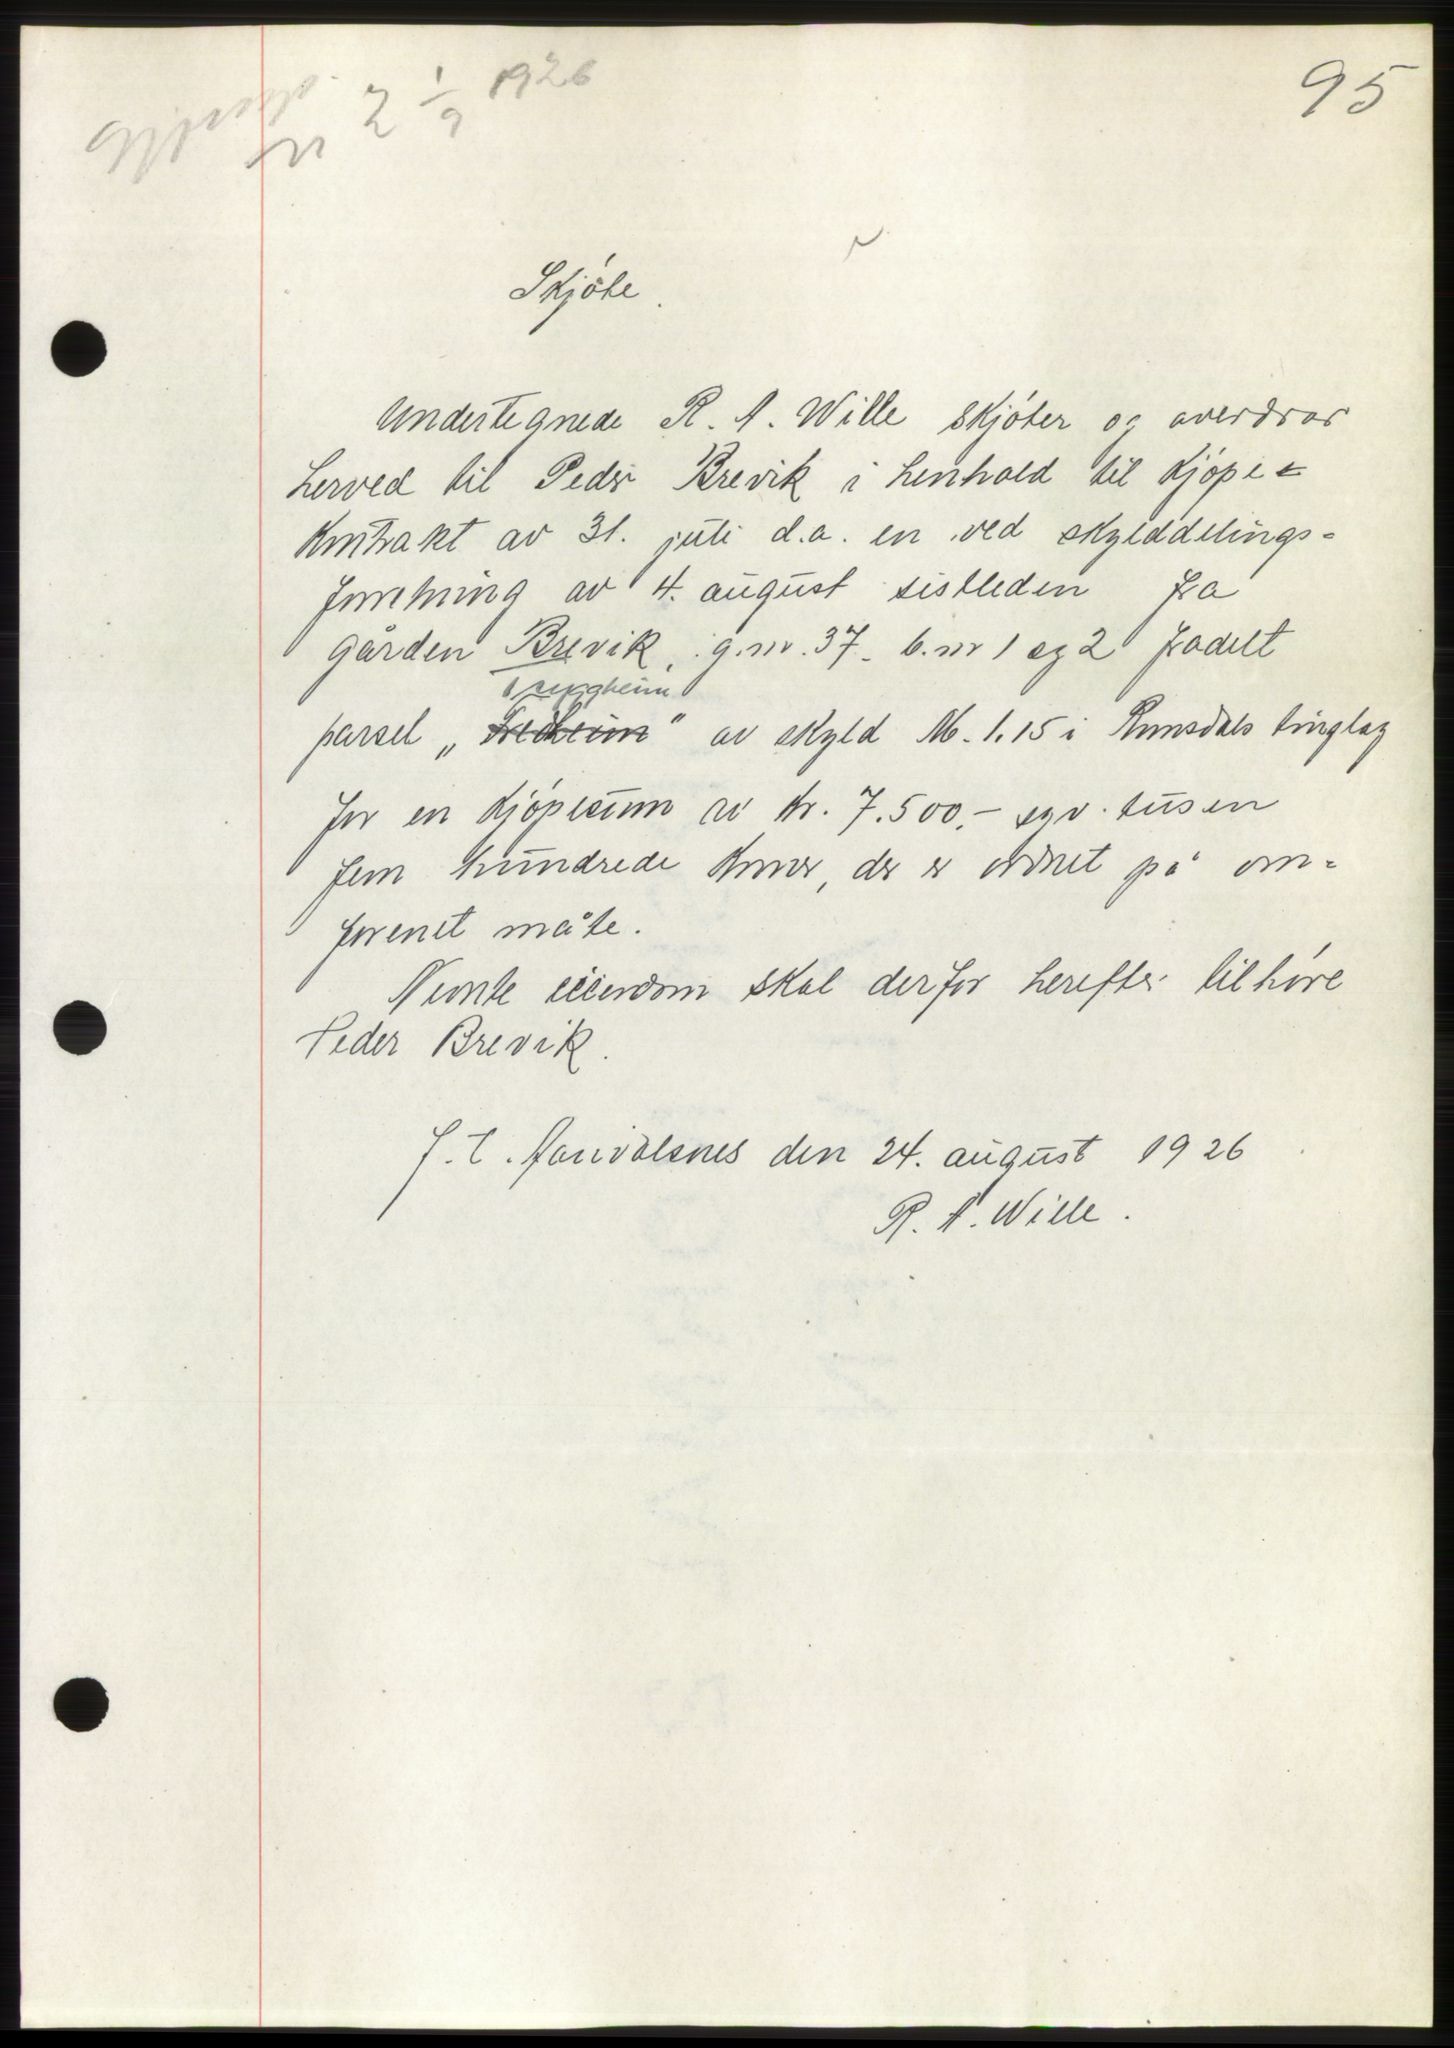 95
nr 2 1/9 1926
Skjöte.
Undertegnede R. A. Wille skjöter og overdrar
herved til Peder Brevik i henhold til kjöpe=
kontrakt av 31. juli d.a. en ved skylddelings=
forretning av 4. august sistleden fra
gården Brevik, g.nr. 37. b.nr 1 og 2 fradelt
parsel „ " av skyld M. 1.15 i Romsdals tinglag
for en kjöpesum av kr. 7.500.- syv tusen
fem hundrede kroner, der er ordnet på om=
forenet måte.
Nevnte eiendom skal derfor herefter tilhöre
Peder Brevik.
den 24. august 1926
R. A. Wille.